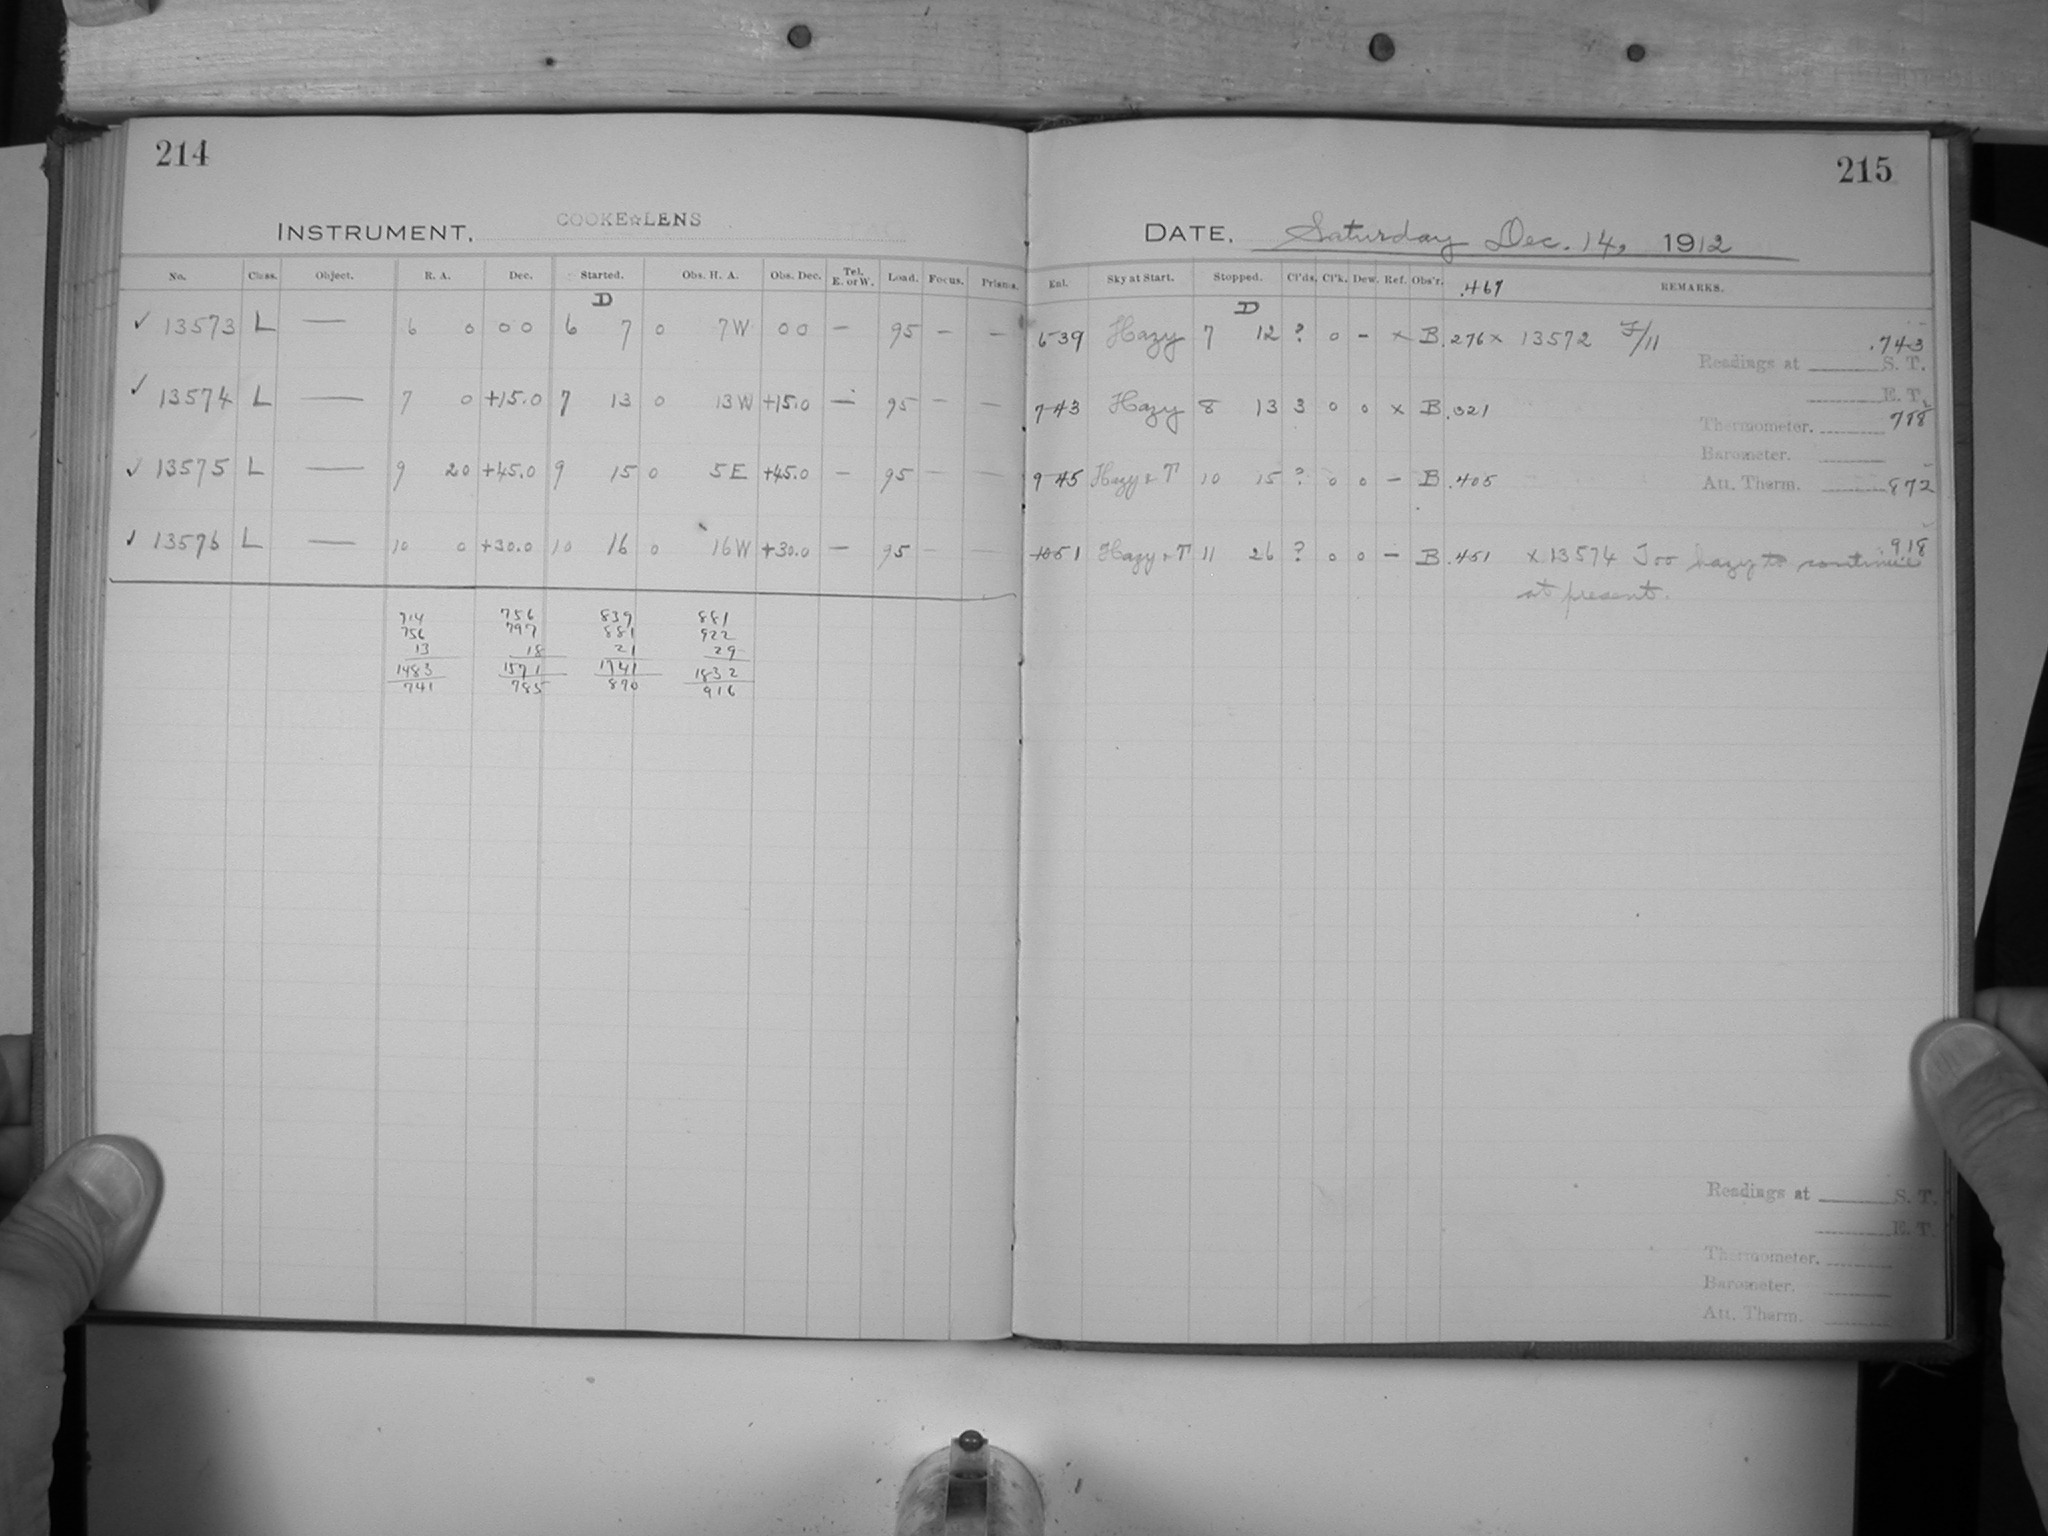 214
INSTRUMENT, COOKE☆LENS
No. Class. Object. R. A. Dec. Started. Obs. H. A. Obs. Dec. Tel. E. or W. Load. Focus. Prisms.
D
✓ 13573 L — 6 0 0 0 0 6 7 0 7W 0 0 — 95 — —
✓ 13574 L — 7 0 +15.0 7 13 0 13W +15.0 — 95 — —
✓ 13575 L — 9 20 +45.0 9 15 0 5E +45.0 — 95 — —
✓ 13576 L — 10 0 +30.0 10 16 0 16W +30.0 — 95 — —
714 756 839 881
756 797 881 922
13 18 21 29
1483 1571 1741 1832
741 785 870 916
215
DATE, Saturday Dec. 14, 1912
Enl. Sky at Start. Stopped. Cl'ds. Cl'k. Dew. Ref. Obs'r. .467 REMARKS.
D
6 39 Hazy 7 12 ? 0 – x B .276 x 13572 F/11 .743
Readings at S. T.
E. T.
7 43 Hazy 8 13 3 0 0 x B .321 788
Thermometer.
Barometer.
9 45 Hazy + T 10 15 ? 0 0 – B .405
Att. Therm. 872
10 51 Hazy + T 11 26 ? 0 0 – B .451 x 13574 Too hazy to continue .918
at present.
Readings at S. T.
E. T.
Thermometer.
Barometer.
Att. Therm.